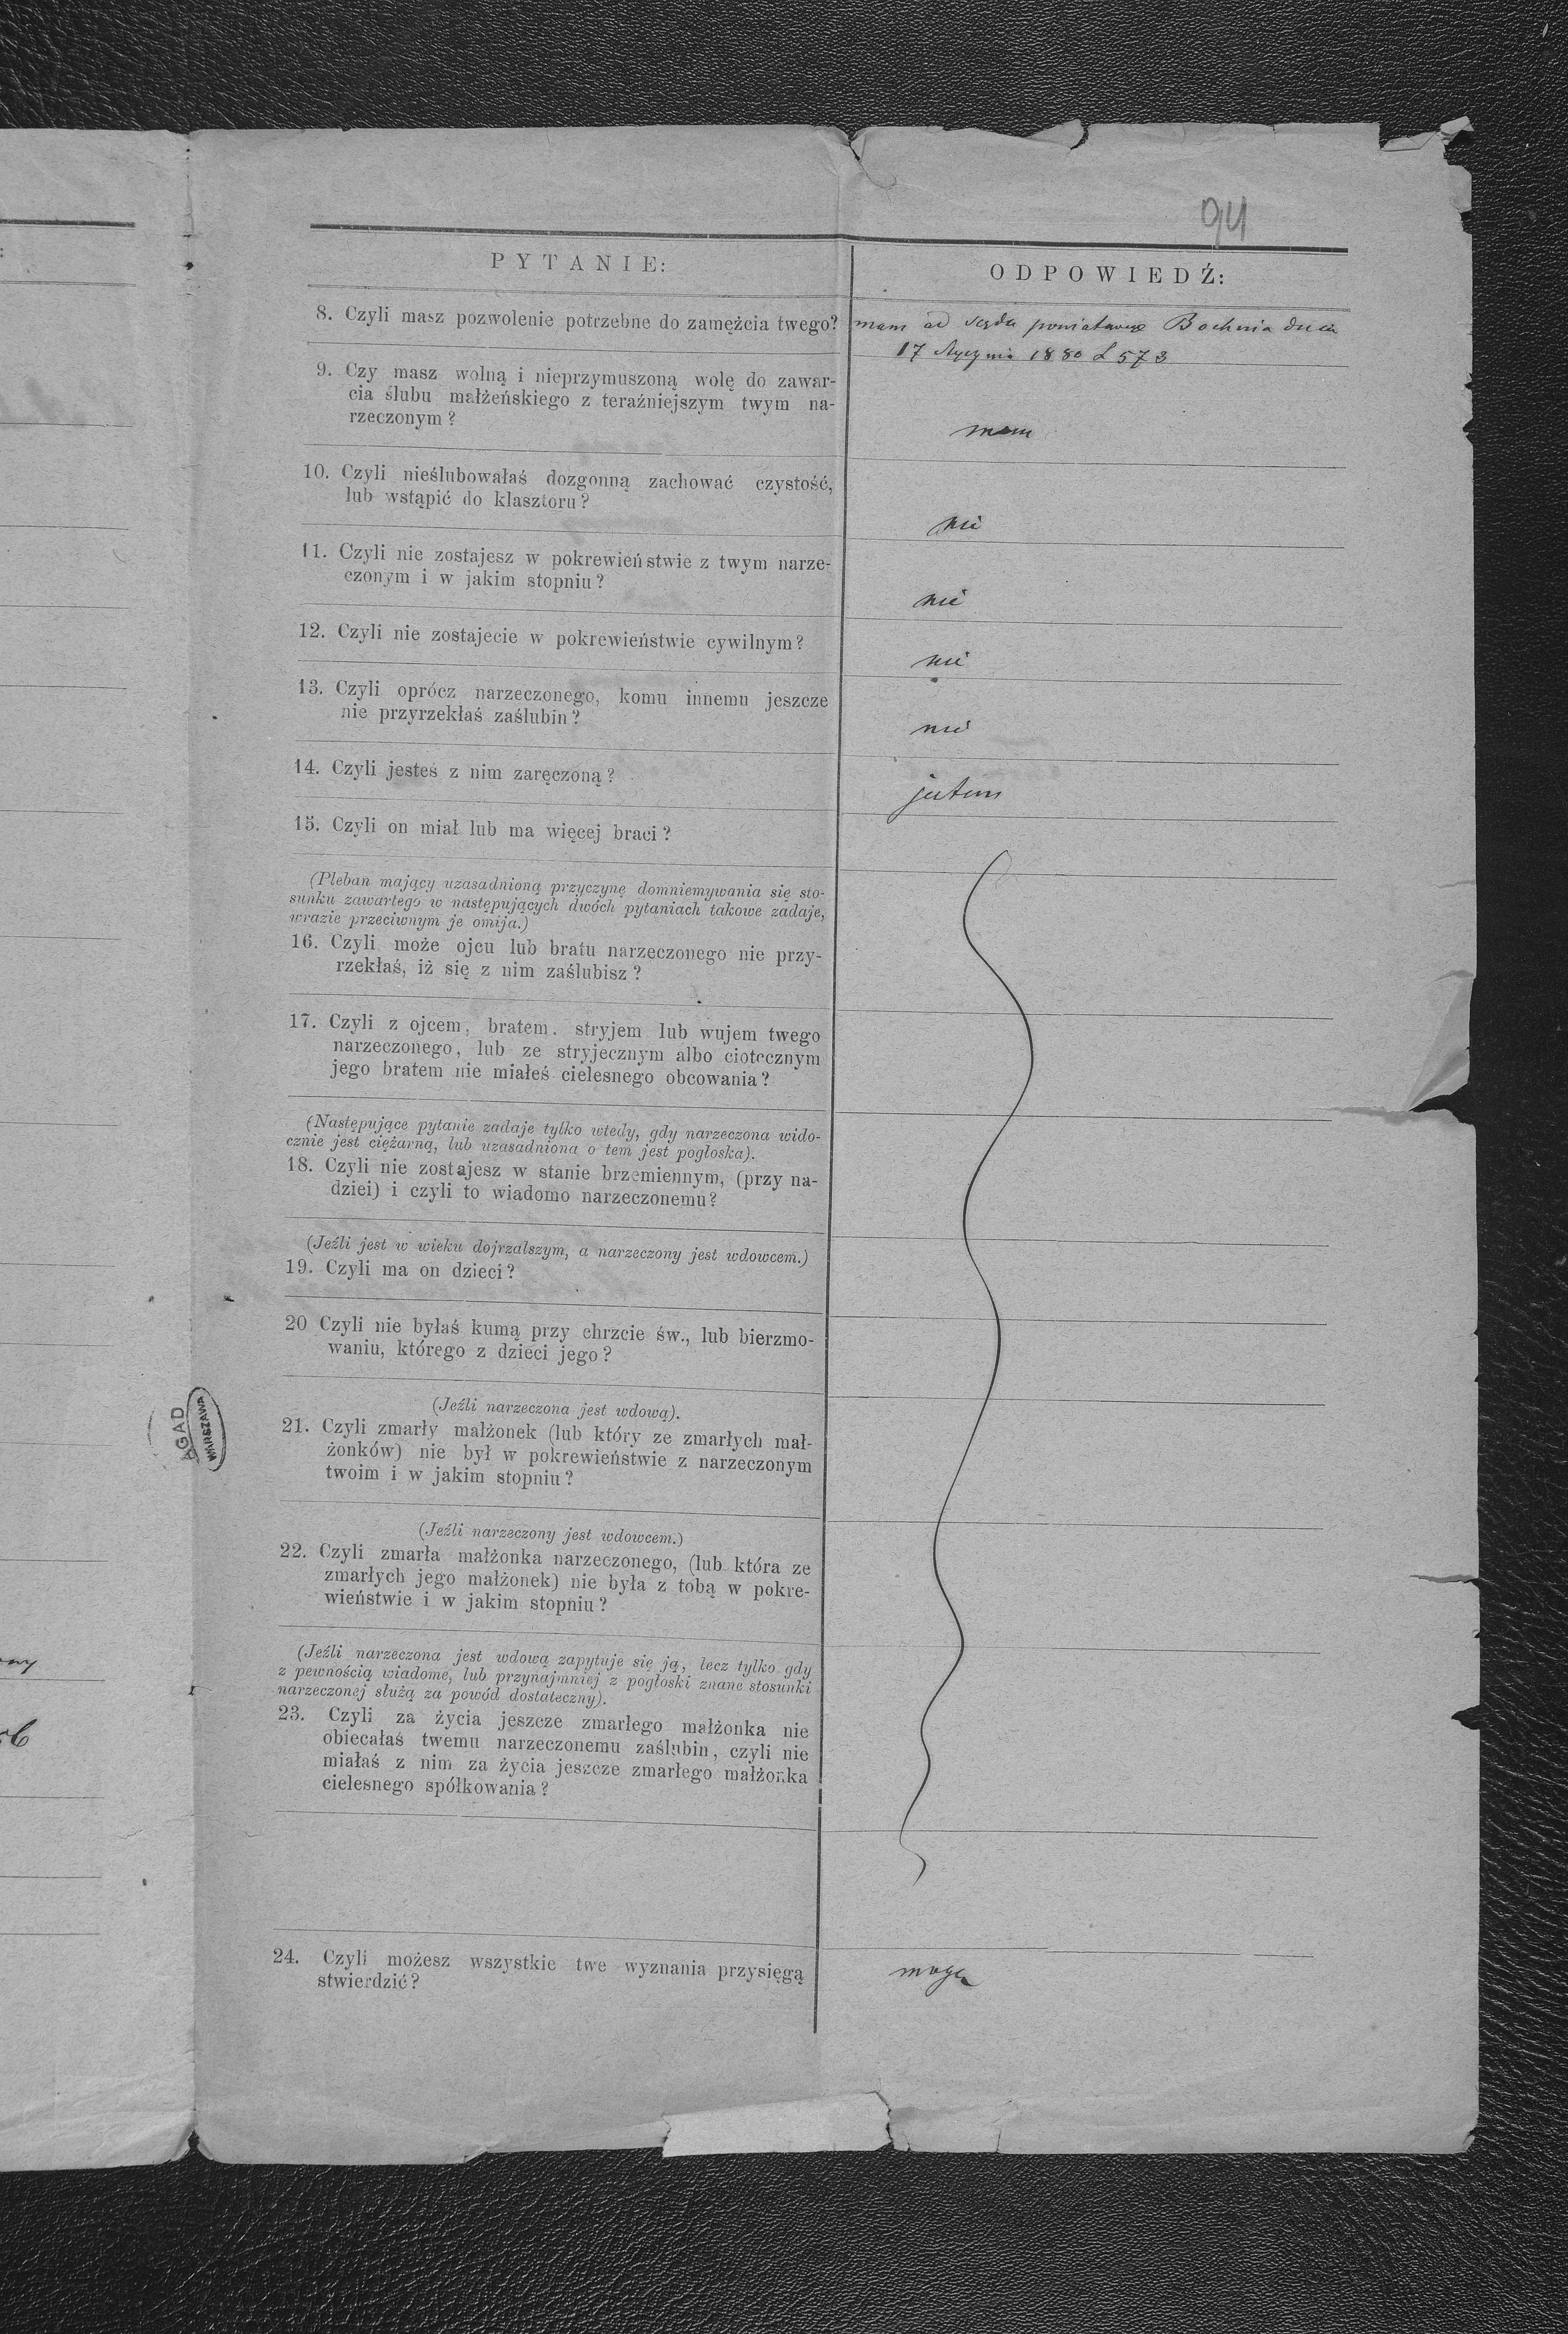 94
PYTANIE:
ODPOWIEDŹ:
8. Czyli masz pozwolenie potrzebne do zamężcia twego?
mam od sądu powiatowego Bochnia dnia
17 Stycznia 1880 L 573
9. Czy masz wolną i nieprzymuszoną wolę do zawar-
cia ślubu małżeńskiego z teraźniejszym twym na-
rzeczonym?
mam
10. Czyli nieślubowałaś dozgonną zachować czystość,
lub wstąpić do klasztoru?
nie
11. Czyli nie zostajesz w pokrewieństwie z twym narze-
czonym i w jakim stopniu?
nie
12. Czyli nie zostajecie w pokrewieństwie cywilnym?
nie
13. Czyli oprócz narzeczonego, komu innemu jeszcze
nie przyrzekłaś zaślubin?
nie
14. Czyli jesteś z nim zaręczoną?
jestem
15. Czyli on miał lub ma więcej braci?
(Pleban mający uzasadnioną przyczynę domniemywania się sto-
sunku zawartego w następujących dwóch pytaniach takowe zadaje,
wrazie przeciwnym je omija.)
16. Czyli może ojcu lub bratu narzeczonego nie przy-
rzekłaś, iż się z nim zaślubisz?
17. Czyli z ojcem, bratem. stryjem lub wujem twego
narzeczonego, lub ze stryjecznym albo ciotecznym
jego bratem nie miałeś cielesnego obcowania?
(Następujące pytanie zadaje tylko wtedy, gdy narzeczona wido-
cznie jest ciężarną, lub uzasadniona o tem jest pogłoska).
18. Czyli nie zostajesz w stanie brzemiennym, (przy na-
dziei) i czyli to wiadomo narzeczonemu?
(Jeźli jest w wieku dojrzalszym, a narzeczony jest wdowcem.)
19. Czyli ma on dzieci?
20 Czyli nie byłaś kumą przy chrzcie św., lub bierzmo-
waniu, którego z dzieci jego?
(Jeźli narzeczona jest wdową).
21. Czyli zmarły małżonek (lub który ze zmarłych mał-
żonków) nie był w pokrewieństwie z narzeczonym
twoim i w jakim stopniu?
(Jeźli narzeczony jest wdowcem.)
22. Czyli zmarła małżonka narzeczonego, (lub która ze
zmarłych jego małżonek) nie była z tobą w pokre-
wieństwie i w jakim stopniu?
(Jeźli narzeczona jest wdową zapytuje się ją, lecz tylko gdy
z pewnością wiadome, lub przynajmniej z pogłoski znane stosunki
narzeczonej służą za powód dostateczny).
23. Czyli za życia jeszcze zmarłego małżonka nie
obiecałaś twemu narzeczonemu zaślubin, czyli nie
miałaś z nim za życia jeszcze zmarłego małżonka
cielesnego spółkowania?
24. Czyli możesz wszystkie twe wyznania przysięgą
stwierdzić?
mogę
AGAD
WARSZAWA